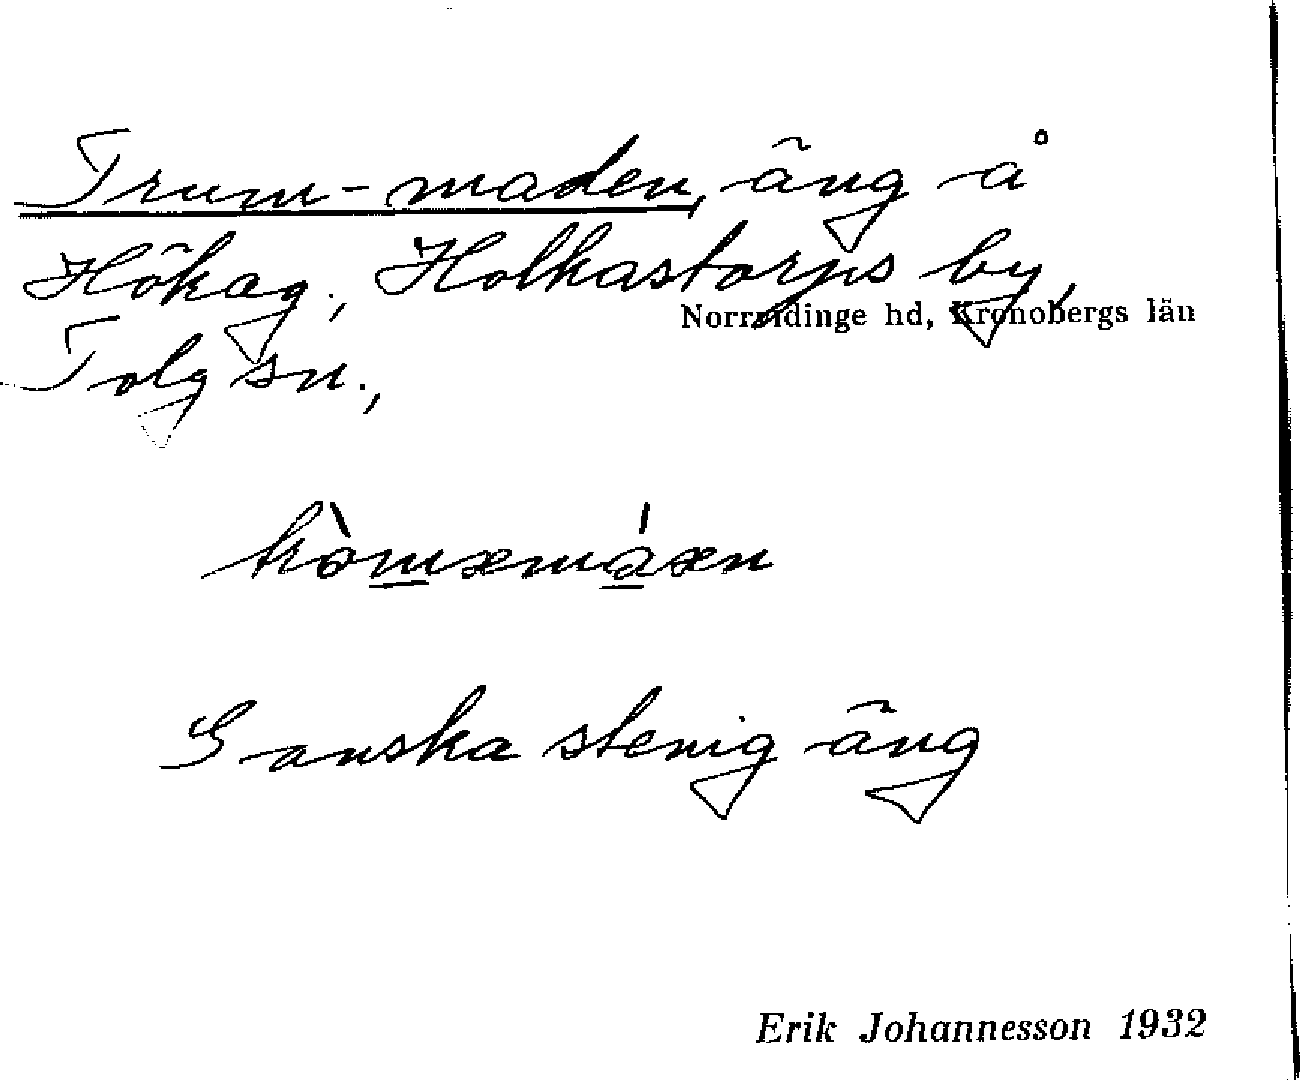 Trum-maden, äng å
Hökag., Holkastorps by,
Norrvidinge hd, Kronobergs län
Tolg sn.,
Ganska stenig äng
Erik Johannesson 1932